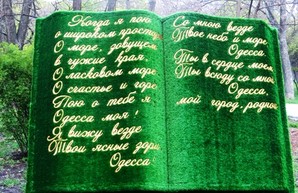 Когда я пою
о широком просторе
О море, зовущем
в чужие края,
О ласковом море
О счастье и горе
Пою о тебе я
Одесса моя!
Я вижу везде
Твои ясные зори
Одесса!
Со мною везде
Твоё небо и море
Одесса
Ты в сердце моём
Ты всюду со мной,
Одесса
мой город, родной